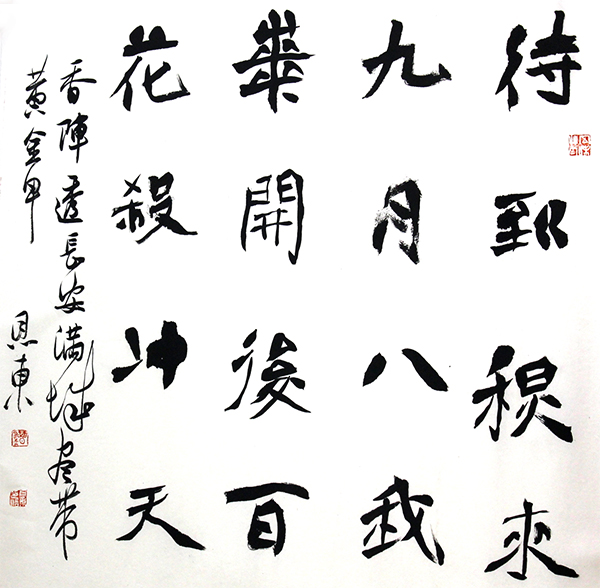 待到秋来
九月八我
華開後百
花殺冲天
香陣透長安满城尽带
黄金甲
恩東